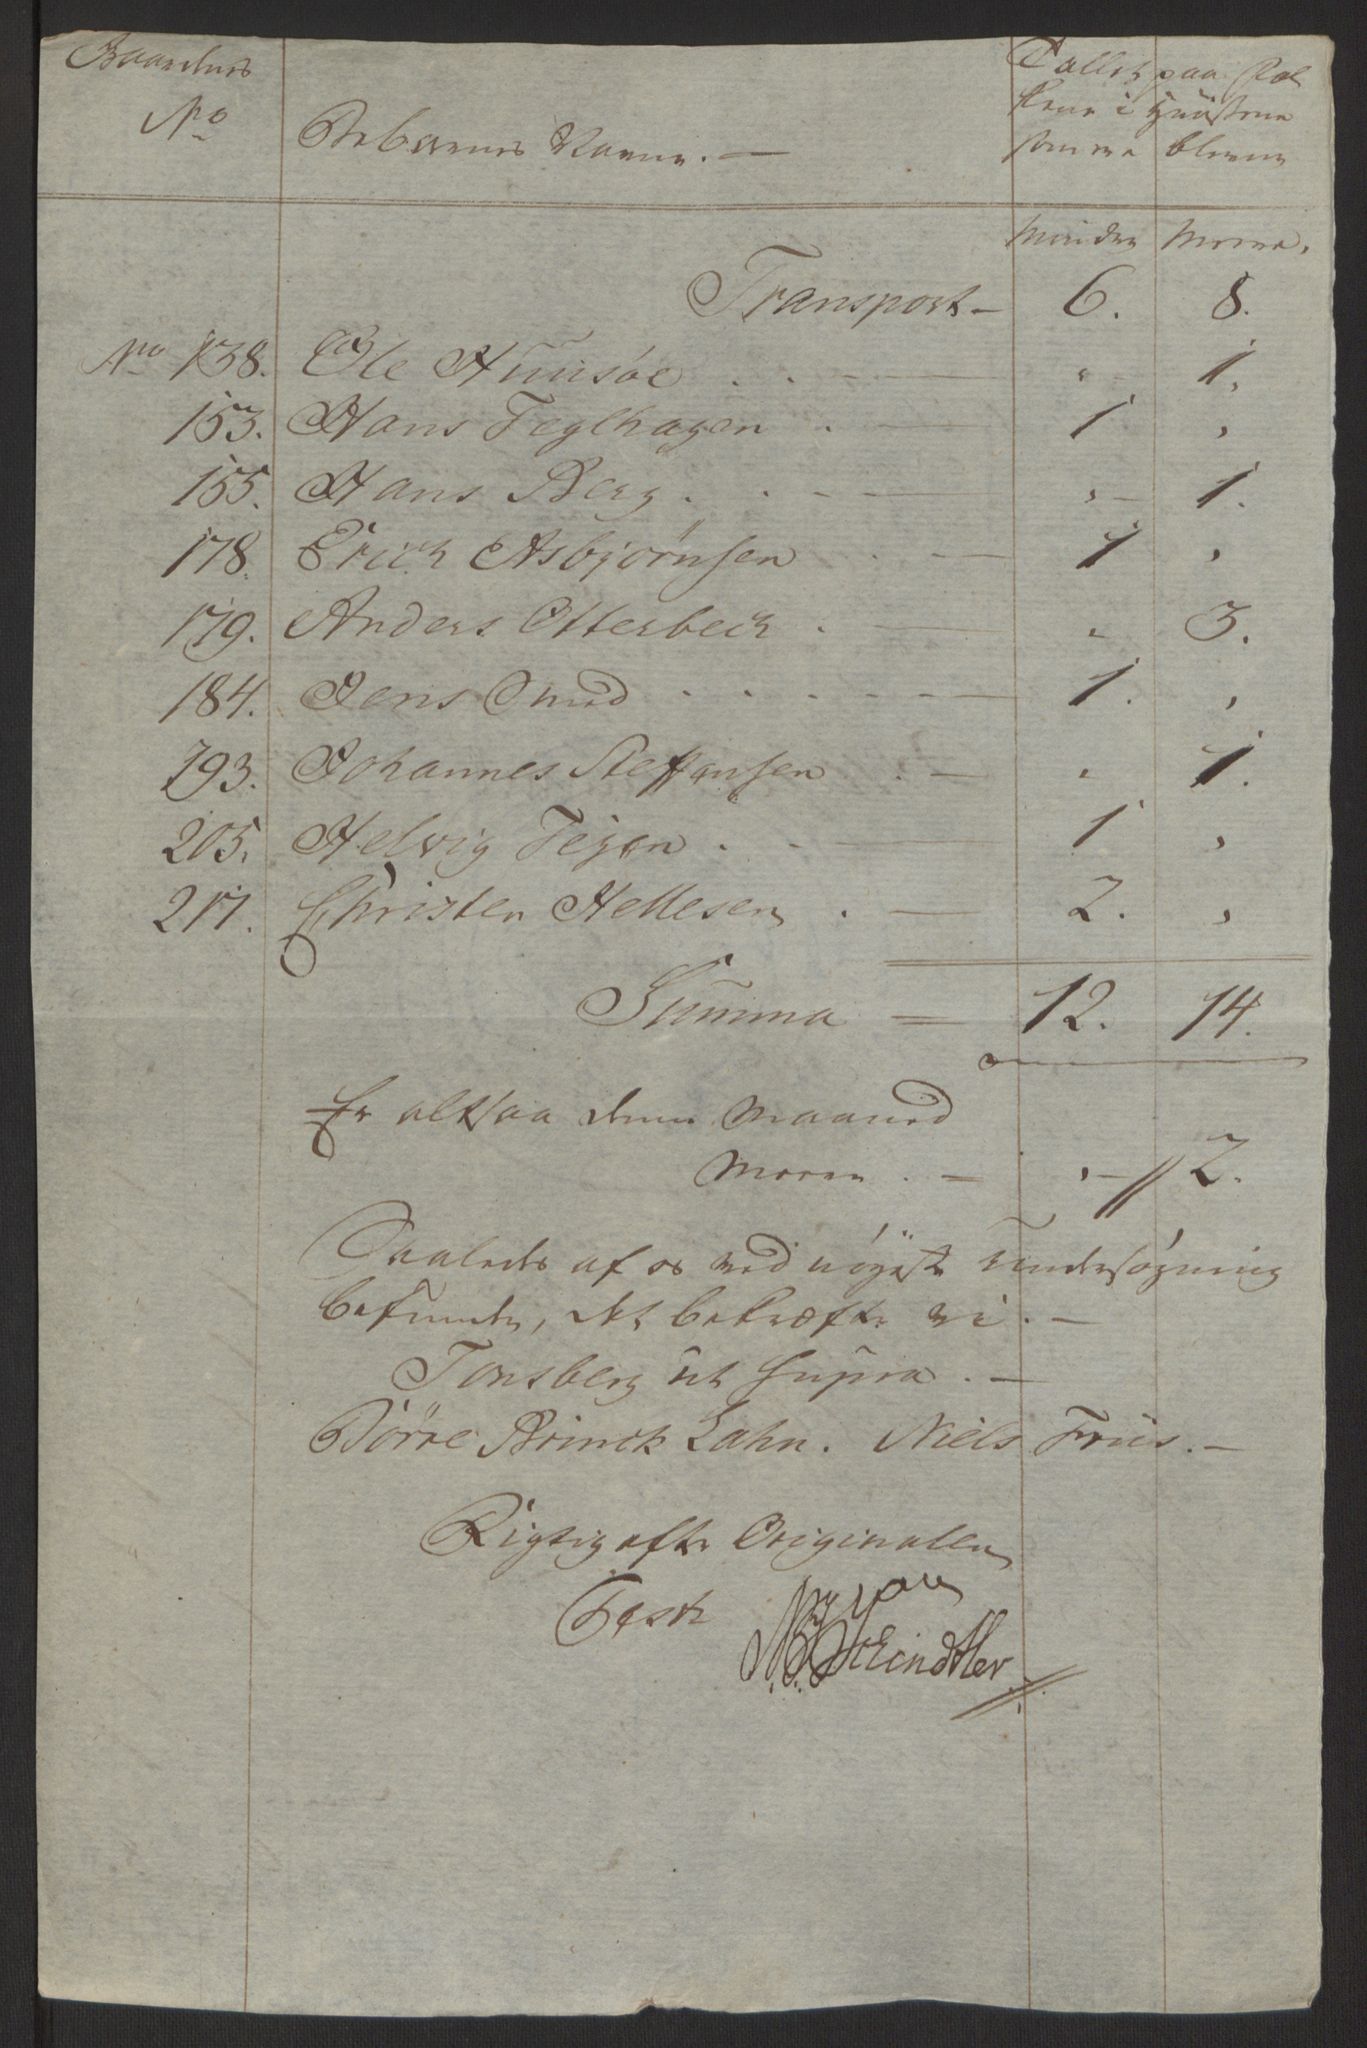 Gaardenes
No
Beboernes Navne. —
Tallet paa Fol
kene i Huusene
som ere blevne
Mindre Meere.
Transport — 6. 8.
No 138. Ole Huusöe . . — „ 1.
153. Hans Teglhagen . — 1 „
155. Hans Berg . . — „ 1.
178. Erich Asbjørnsen . — 1 „
179. Anders Otterbech . — „ 3.
184. Jens Smed . . . — 1. „
193. Johannes Steffensen . — „ 1.
205. Helvig Tejen . . — 1 „
217. Christen Hellesen . — 2. „
Summa = 12. 14.
Er altsaa denne Maaned
Meere . — „ — // 2.
Saaledes af os ved nøyeste Undersøgning
befunden, det bekræfter vi. —
Tonsberg ut supra. —
Börre Brinck Lahn. Niels Friis. —
Rigtig efter Originallen
Test